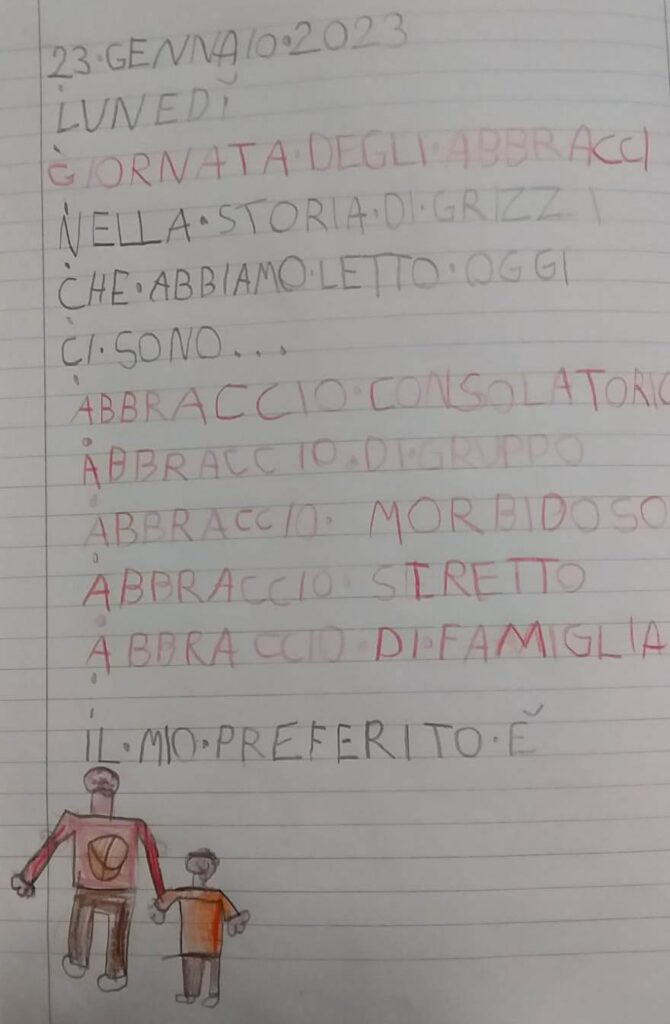 23·GENNAIO·2023
LUNEDÌ
GIORNATA·DEGLI·ABBRACCI
NELLA·STORIA·DI·GRIZZI
CHE·ABBIAMO·LETTO·OGGI
CI·SONO...
ABBRACCIO·CONSOLATORIO
ABBRACCIO·DI·GRUPPO
ABBRACCIO·MORBIDOSO
ABBRACCIO·STRETTO
ABBRACCIO·DI·FAMIGLIA
IL·MIO·PREFERITO·È